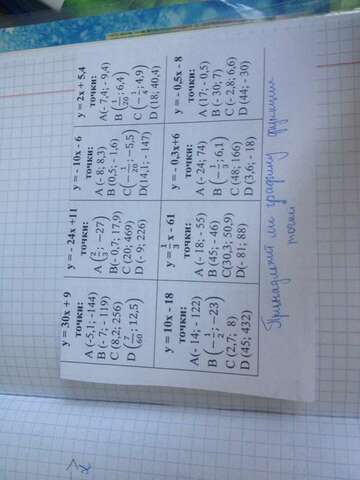 y = 30x + 9
точки:
A (-5,1; -144)
B (- 7; - 119)
C (8,2; 256)
D (7/60; 12,5)
y = - 24x +11
точки:
A (2/3; −27)
B(- 0,7; 17,9)
C (20; 469)
D (- 9; 226)
y = - 10x - 6
точки:
A (- 8; 8,3)
B (0,5; - 1,6)
C (−1/20; −5,5)
D(14,1; - 147)
y = 2x + 5,4
точки:
A(- 7,4; - 9,4)
B (1/20; 6,4)
C (−1/4; 4,9)
D (18; 40,4)
y = 10x - 18
точки:
A(- 14; - 122)
B (−1/2; −23)
C (2,7; 8)
D (45; 432)
y=1/3x - 61
точки:
A (- 18; - 55)
B (45; - 46)
C(30,3; 50,9)
D(- 81; 88)
y = - 0,3x+6
точки:
A (- 24; 74)
B (−1/3; 6,1)
C (48; 166)
D (3,6; - 18)
y = - 0,5x - 8
точки:
A (17; - 0,5)
B (- 30; 7)
C (- 2,8; 6,6)
D (44; - 30)
Принадлежит ли графику функции
точки